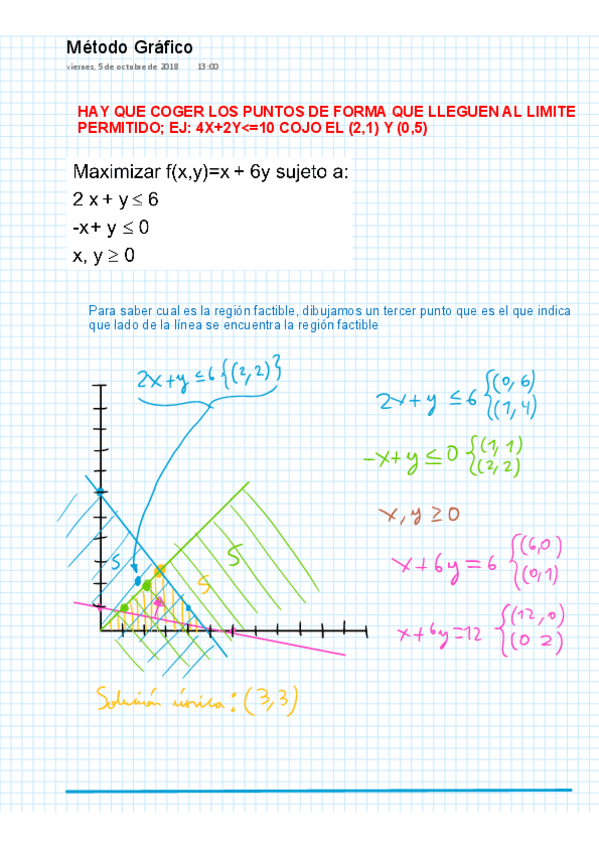 Método Gráfico
viernes, 5 de octubre de 2018 13:00
HAY QUE COGER LOS PUNTOS DE FORMA QUE LLEGUEN AL LIMITE
PERMITIDO; EJ: 4X+2Y<=10 COJO EL (2,1) Y (0,5)
Maximizar f(x,y)=x + 6y sujeto a:
2 x + y ≤ 6
-x+ y ≤ 0
x, y ≥ 0
Para saber cual es la región factible, dibujamos un tercer punto que es el que indica
que lado de la línea se encuentra la región factible
2x+y ≤ 6 {(2,2)}
2x+y ≤ 6 {(0,6)
(1,4)
-x+y ≤ 0 {(1,1)
(2,2)
x, y ≥ 0
x+6y = 6 {(6,0)
(0,1)
x+6y=12 {(12,0)
(0 2)
S
S
S
Solución única: (3,3)